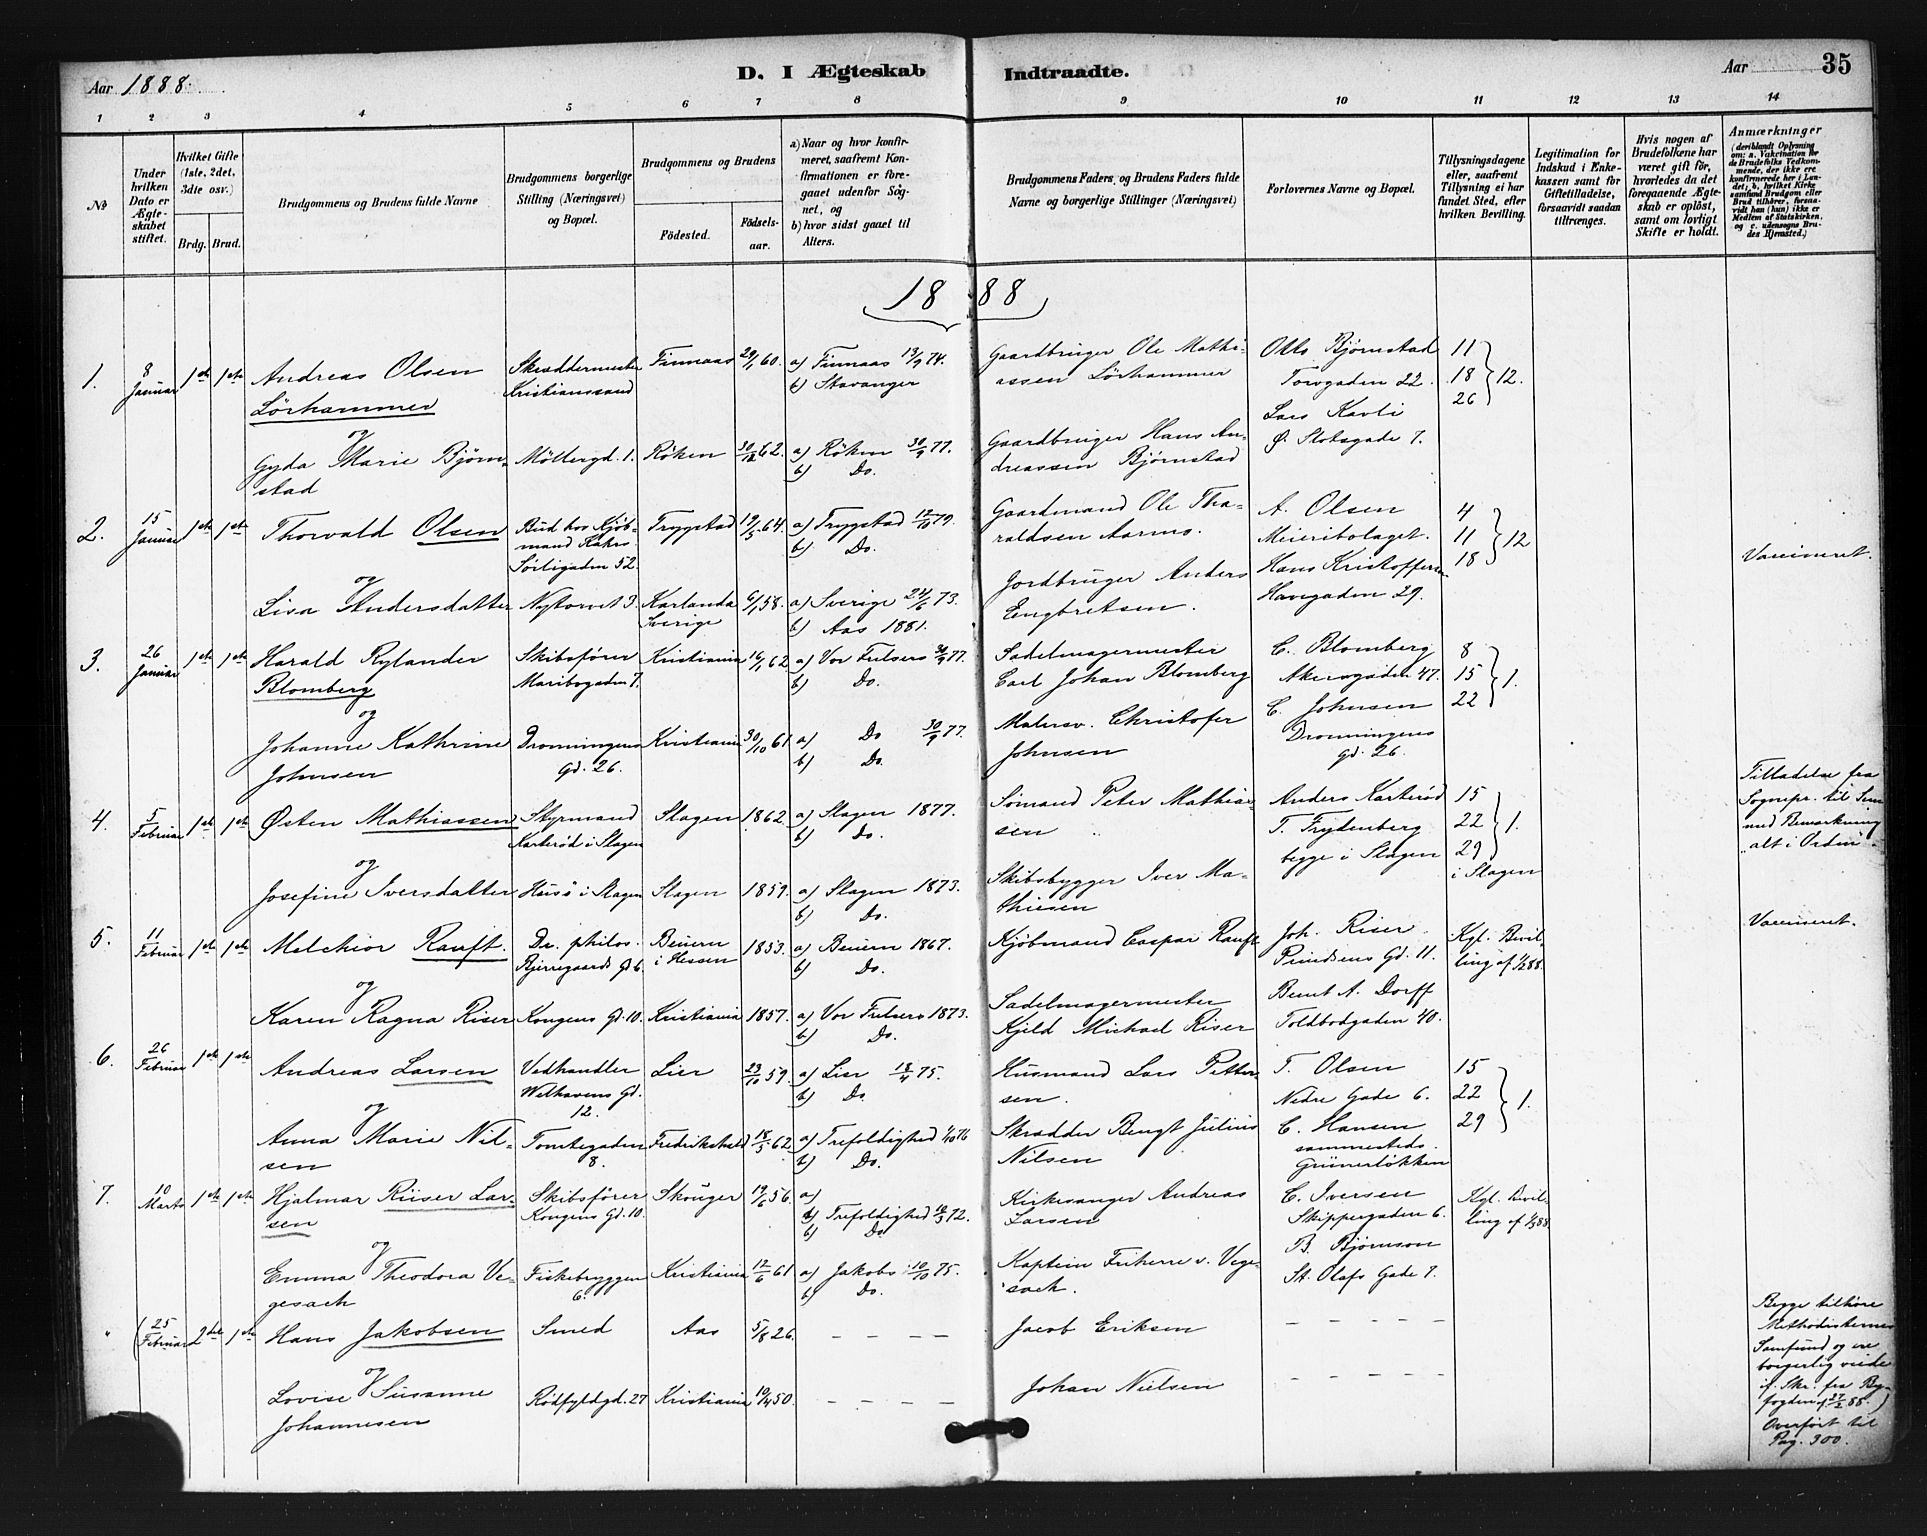 Aar 1888.
D. I Ægteskab Indtraadte.
Aar
35
1 2 3 4 5 6 7 8 9 10 11 12 13 14
No
Under hvilken Dato er Ægteskabet stiftet.
Hvilket Gifte (1ste, 2det, 3die osv.)
Brdg. Brud.
Brudgommens og Brudens fulde Navne
Brudgommens borgerlige Stilling (Næringsvei) og Bopæl.
Brudgommens og Brudens
Fødested.
Fødselsaar.
a) Naar og hvor konfirmeret, saafremt Konfirmationen er foregaaet udenfor Sognet, og
b) hvor sidst gaaet til Alters.
Brudgommens Faders, og Brudens Faders fulde Navne og borgerlige Stillinger (Næringsvei)
Forlovernes Navne og Bopæl.
Tillysningsdagene eller, saafremt Tillysning ei har fundet Sted, efter hvilken Bevilling.
Legitimation for Indskud i Enkekassen samt for Giftetilladelse, forsaavidt saadan tiltrænges.
Hvis nogen af Brudefolkene har været gift før, hvorledes da det foregaaende Ægteskab er opløst, samt om lovligt Skifte er holdt.
Anmærkninger
(deriblandt Oplysning om: a. Vakcination for de Brudefolks Vedkommende, der ikke ere konfirmerede her i Landet; b, hvilket Kirkesamfund Brudgom eller Brud tilhører, forsaavidt han (hun) ikke er Medlem af Statskirken, og c. udensogns Brudes Hjemsted.)
1888
1. 8 Januar 1ste 1ste Andreas Olsen Lörhammer
Skræddermester Kristianssand
Finnaas 29/1 60.
a) Finnaas 13/9 74.
b) Stavanger
Gaardbruger Ole Mathiassen Lörhammer
Otto Bjørnstad
Torvgaden 22.
11 18 26 } 12.
og
Gyda Marie Bjørnstad
Möllergd. 1.
Röken 30/12 62.
a) Röken 30/9 77.
b) Do.
Gaardbruger Hans Andreassen Bjørnstad
Lars Kavli
Ø. Slotsgade 7.
2. 15 Januar 1ste 1ste Thorvald Olsen
Bud hos Kjöbmand
Sörligaden 52.
Trygstad 19/5 64.
a) Trygstad 12/10 79.
b) Do.
Gaardmand Ole Tharaldsen Aarmo.
A. Olsen
Meieribolaget.
4 11 18 } 12
og
Lisa Andersdatter
Nytorvet 3.
Karlanda Sverige 6/1 58.
a) Sverige 24/6 73.
b) Aas 1881.
Jordbruger Anders Engbretsen.
Hans Kristoffersen
Havegaden 29.
Vaccineret.
3. 26 Januar 1ste 1ste Harald Rylander Blomberg
Skibsfører
Maribogaden 7.
Kristiania 16/1 62
a) Vor Frelsers 30/9 77.
b) Do.
Sadelmagermester Carl Johan Blomberg
C. Blomberg
Akersgaden 47.
8 15 22 } 1.
og
Johanne Kathrine Johnsen
Dronningens Gd. 26.
Kristiania 30/10 61
a) Do 30/9 77.
b) Do.
Malersv. Christofer Johnsen
C. Johnsen
Dronningens gd. 26.
4. 5 Februar 1ste 1ste Østen Mathiassen
Styrmand
Karterød i Slagen
Slagen 1862
a) Slagen 1877.
b) Do.
Sömand Peter Mathiassen
Anders Karterød
T. Frydenberg
begge i Slagen
15 22 29 } 1.
i Slagen
Tilladelse fra Sognepr. til Sem med Bemærkning "alt i Orden".
og
Josefine Iversdatter
Husö i Slagen
Slagen 1859.
a) Slagen 1873.
b) Do.
Skibsbygger Iver Mathiesen
5. 11 Februar 1ste 1ste Melchior Rauft.
Dr. philos.
Bjerregaards Gd 6.
Beuern i Hessen 1853.
a) Beuern 1867.
b) Do.
Kjöbmand Caspar Rauft
Joh. Riser.
Prindsens Gd. 11.
Kgl. Bevilling af 1/2 88.
Vaccineret.
og
Karen Ragna Riser
Kongens Gd. 10.
Kristiania 1857.
a) Vor Frelsers 1873.
b) Do.
Sadelmagermester Kjeld Michael Riser
Bernt A. Dorff
Toldbodgaden 40.
6. 26 Februar 1ste 1ste Andreas Larsen
Vedhandler
Welhavens Gd. 12.
Lier 23/10 59.
a) Lier 18/4 75.
b) Do.
Husmand Lars Pettersen.
T. Olsen
Nedre Gade 6.
15 22 29 } 1.
og
Anna Marie Nilsen
Tomtegaden 8.
Fredrikshald 18/5 62
a) Trefoldighed 1/10 76
b) Do.
Skrædder Bengt Julius Nilsen
C. Hansen
sammesteds
Grünerløkken
7. 10 Marts 1ste 1ste Hjalmar Riiser Larsen
Skibsfører
Kongens Gd. 10.
Skouger 19/6 56.
a)
b) Trefoldighed 10/3 72.
b) Do
Kirkesanger Andreas Larsen
C. Iversen
Skippergaden 6.
Kgl. Bevilling af 1/3 88.
og
Emma Theodora Vegesach
Fiskebryggen 6.
Kristiania 12/6 61
a) Jakobs 10/10 75.
b) Do.
Kaptein Friherre v. Vegesack.
B. Bjørnson
St. Olafs Gade 7.
" (25 Februar 2det 1ste Hans Jakobsen
Smed
Aas 5/8 26.
– – – –
Jacob Eriksen
– – – – –
og
Lovise Susanne Johannesen
Rødfyldgd. 27
Kristiania 10/4 50.
– – – –
Johan Nielsen
– – – – –
Begge tilhøre
Methodisternes
Samfund og ere
borgerlig viede
if. Skr. fra By-
fogden af 27/2 88.)
Overført til
Pag. 300.